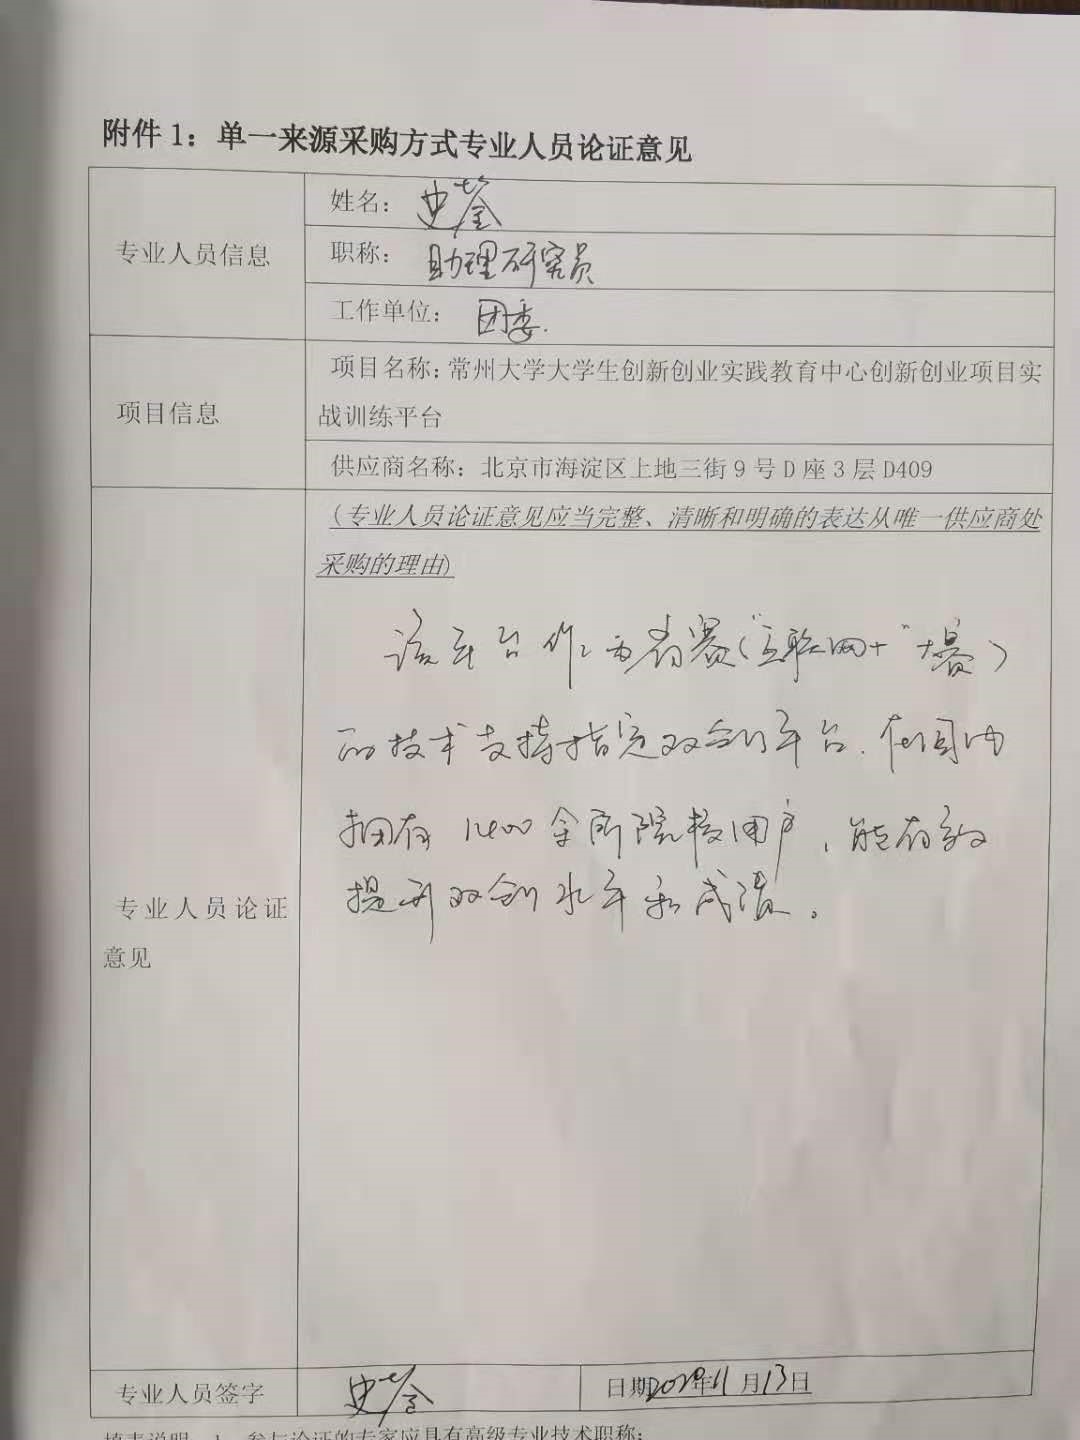 附件 1：单一来源采购方式专业人员论证意见
专业人员信息
姓名：史荃
职称：助理研究员
工作单位：团委.
项目信息
项目名称：常州大学大学生创新创业实践教育中心创新创业项目实
战训练平台
供应商名称：北京市海淀区上地三街 9 号 D 座 3 层 D409
专业人员论证
意见
（专业人员论证意见应当完整、清晰和明确的表达从唯一供应商处
采购的理由）
该平台作为省赛（“互联网+”大赛）
的技术支持指定双创平台.在国内
拥有1400余所院校用户，能有效
提升双创水平和成绩。
专业人员签字
史荃
日期2020年11月13日
填表说明：1、参与论证的专家应具有高级专业技术职称；